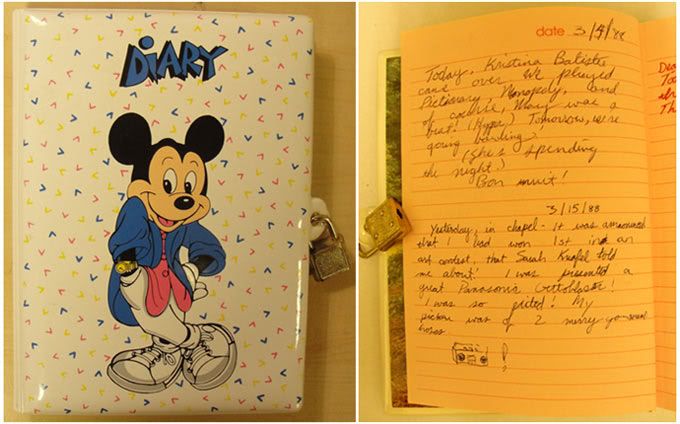 DiARY
date 3/4/88
Today, Kristina Batiste
came over. We played
Pictionary, Monopoly, and
of course, Mary was a
brat! (Hyper) Tomorrow, we're
going bowling!
(She's spending
the night!)
Bon nuit!
3/15/88
Yesterday, in chapel - it was announced
that I had won 1st in an
art contest that Sarah told
me about! I was presented a
great Panasonic Gettoblaster!
I was so My
picture was of 2 merry-go-round
horses
!
Dea
Too
Th